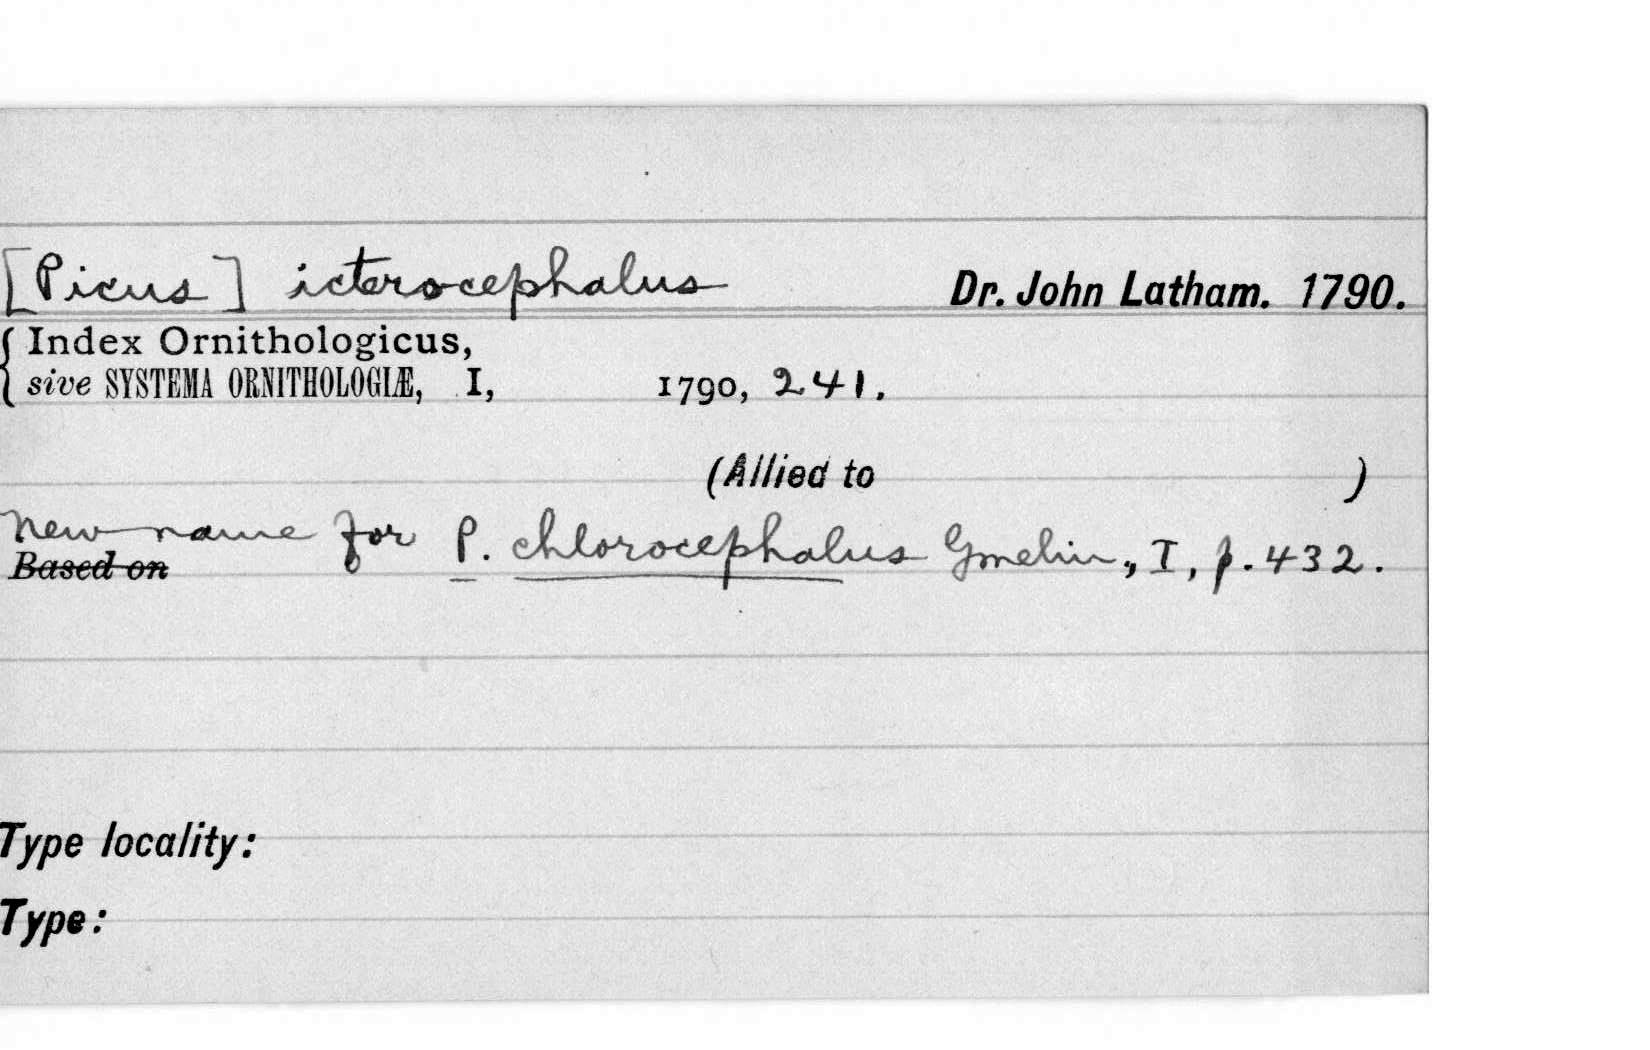 [Picus] icterocephalus Dr. John Latham. 1790.
Index Ornithologicus,
sive SYSTEMA ORNITHOLOGIÆ, I, 1790, 241.
(Allied to )
New name for P. chlorocephalus Gmelin, I, p. 432.
Based on
Type locality:
Type: